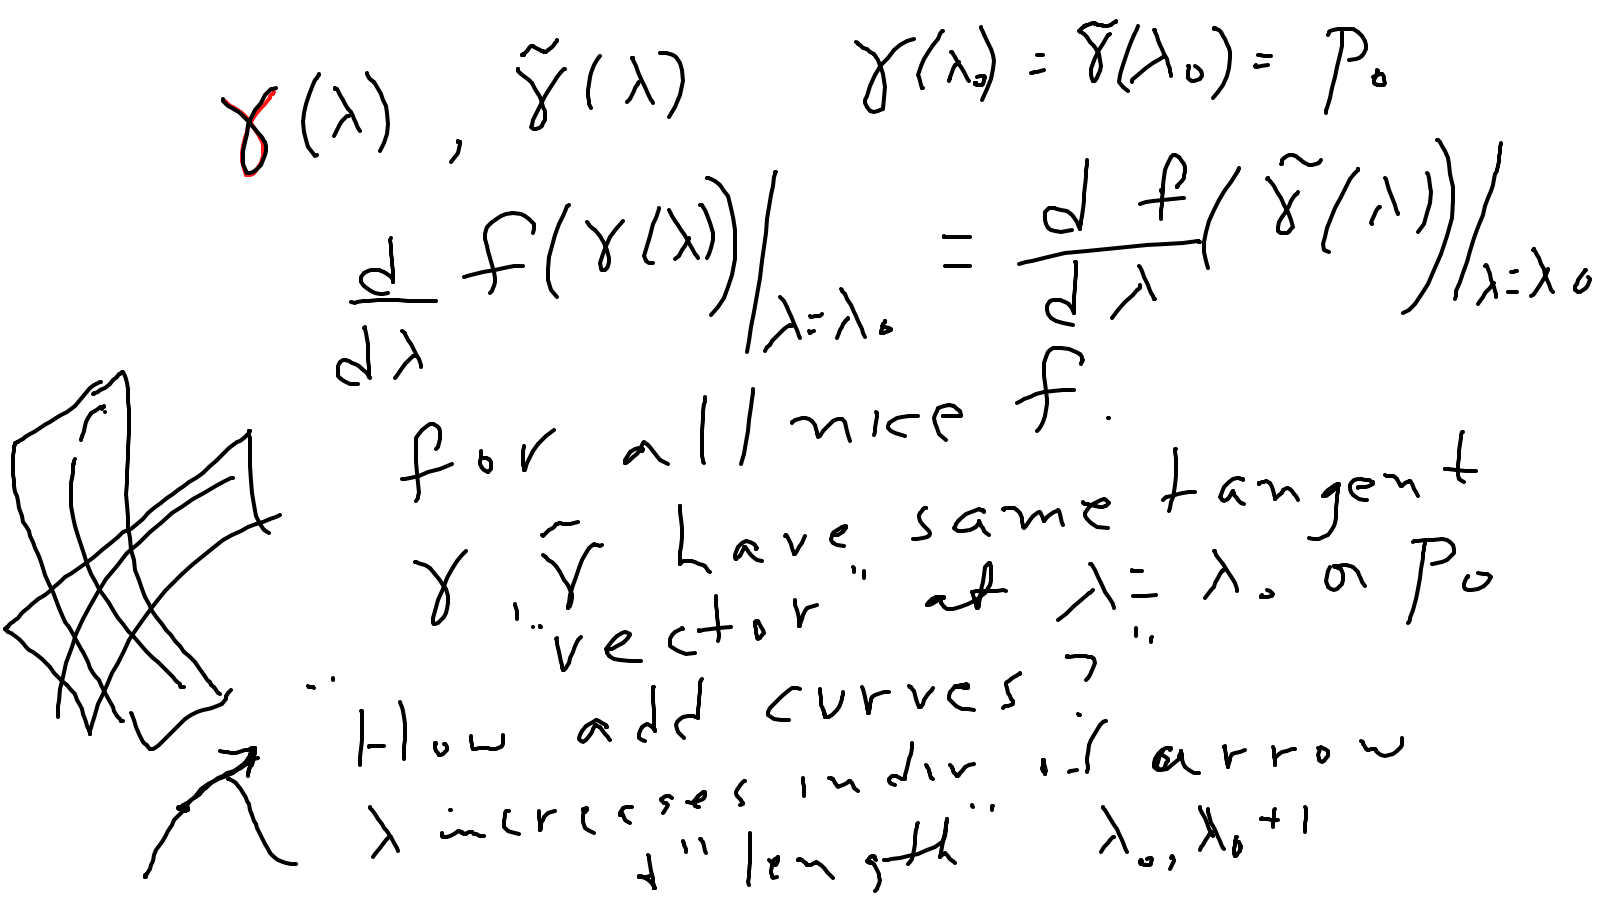 γ(λ), γ̃(λ) γ(λ₀) = γ̃(λ₀) = P₀
d/dλ f(γ(λ))|λ=λ₀ = d f/dλ (γ̃(λ))|λ=λ₀
for all nice f.
γ γ̃ have same tangent
"vector" at λ = λ₀ or P₀
"How add curves?"
λ increases in dir of arrow
"length" λ₀, λ₀+1